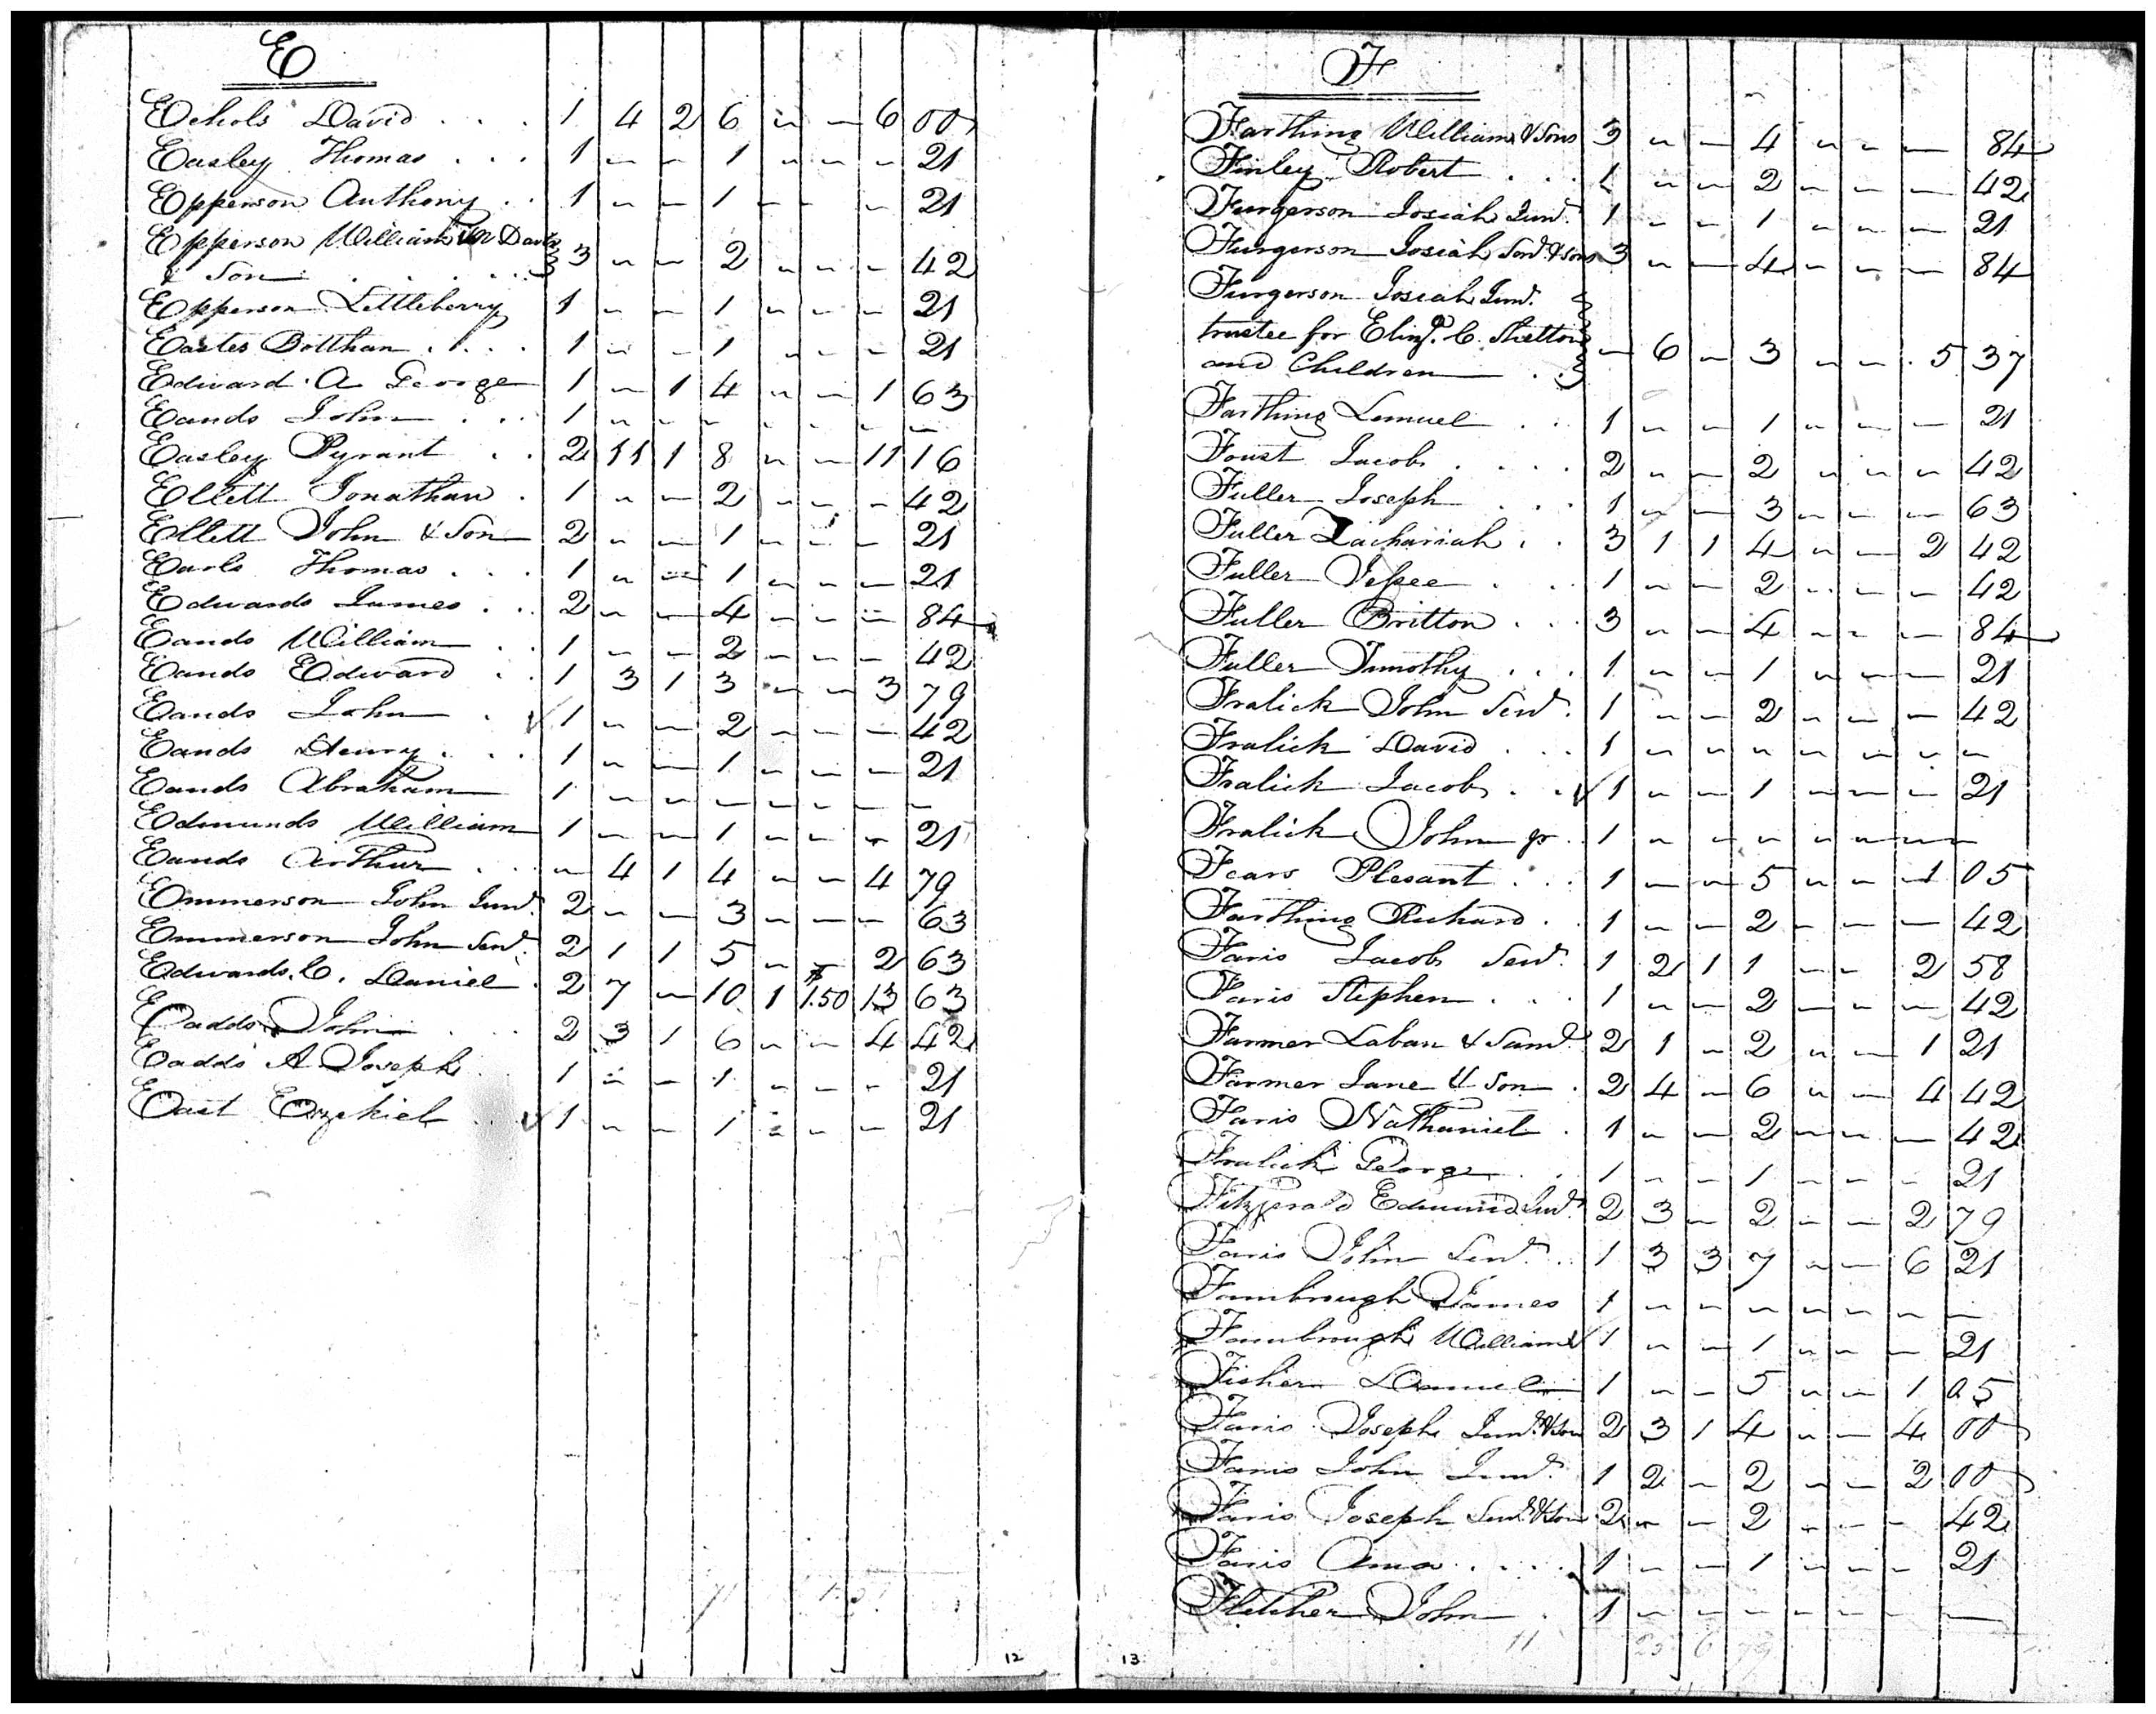 E
Echols David . . . 1 4 2 6 " – 6 00
Easley Thomas . . . 1 – – 1 – – – 21
Epperson Anthony . . 1 – – 1 – – – 21
Epperson William & Wm Davis
& Son . . . . . 3 – – 2 – – – 42
Epperson Littleberry 1 – – 1 – – – 21
Eastes Botthan . . . . 1 – – 1 – – – 21
Edward A George 1 – 1 4 – – 1 63
Eands John . . . 1 – – – – – – –
Easley Pyrant . . 2 11 1 8 – – 11 16
Ellett Jonathan . 1 – – 2 – – – 42
Ellett John & Son 2 – – 1 – – – 21
Earls Thomas . . . 1 – – 1 – – – 21
Edwards James . . . 2 – – 4 – – – 84
Eands William . . 1 – – 2 – – – 42
Eands Edward . . 1 3 1 3 – – 3 79
Eands John . √ 1 – – 2 – – – 42
Eands Henry . . . 1 – – 1 – – – 21
Eands Abraham 1 – – – – – – –
Edmunds William 1 – – 1 – – – 21
Eands Arthur . . – 4 1 4 – – 4 79
Emmerson John Junr. 2 – – 3 – – – 63
Emmerson John Senr. 2 1 1 5 – – 2 63
Edwards. C. Daniel . 2 7 – 10 1 $1.50 13 63
Eadds John . . . 2 3 1 6 – – 4 42
Eadds A Joseph 1 – – 1 – – – 21
East Ezekiel . . √ 1 – – 1 – – – 21
12
F
Farthing William & Sons 3 – – 4 – – – 84
Finley Robert . . . 1 – – 2 – – – 42
Furgerson Josiah Junr. 1 – – 1 – – – 21
Furgerson Josiah Senr. & sons 3 – – 4 – – – 84
Furgerson Josiah Junr.
trustee for Elizh. C. Shelton
and Children . – 6 – 3 – – 5 37
Farthing Lemuel . . . 1 – – 1 – – – 21
Foust Jacob . . . . 2 – – 2 – – – 42
Fuller Joseph . . . 1 – – 3 – – – 63
Fuller Zachariah . . 3 1 1 4 – – 2 42
Fuller Jessee . . . 1 – – 2 – – – 42
Fuller Britton . . . 3 – – 4 – – – 84
Fuller Timothy . . . 1 – – 1 – – – 21
Fralick John Senr. 1 – – 2 – – – 42
Fralick David . . . 1 – – – – – – –
Fralick Jacob . . √ 1 – – 1 – – – 21
Fralick John jr . 1 – – – – – – –
Fears Plesant . . . 1 – – 5 – – 1 05
Farthing Richard . 1 – – 2 – – – 42
Faris Jacob Senr. 1 2 1 1 – – 2 58
Faris Stephen . . . 1 – – 2 – – – 42
Farmer Laban & Saml. 2 1 – 2 – – 1 21
Farmer Jane & Son . 2 4 – 6 – – 4 42
Faris Nathaniel . 1 – – 2 – – – 42
Fralick George . . 1 – – 1 – – – 21
Fitzjerald Edmund Junr. 2 3 – 2 – – 2 79
Faris John Senr. . . 1 3 3 7 – – 6 21
Fambrough James 1 – – – – – – –
Fambrough William √ 1 – – 1 – – – 21
Fisher Daniel 1 – – 5 – – 1 05
Faris Joseph Junr. & Son 2 3 1 4 – – 4 00
Faris John Junr. 1 2 – 2 – – 2 00
Faris Joseph Senr. & Son 2 – – 2 – – – 42
Faris Ama . . . . 1 – – 1 – – – 21
Fletcher John . 1 – – – – – – –
13